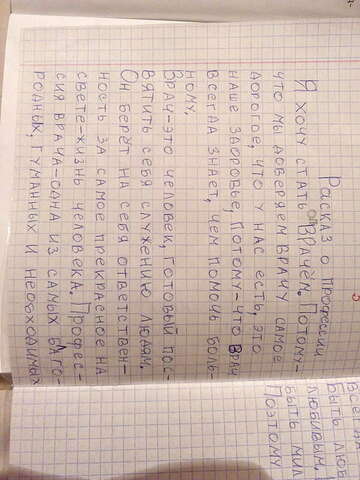 Расказ о професии
Я хочу стать Врачём. Потому-
что мы доверяем врачу самое
дорогое, что у нас есть, это
наше здоровье, потому-что врач
всегда знает, чем помочь боль-
ному.
Врач-это человек, готовый пос-
вятить себя служению людям.
Он берёт на себя ответствен-
ность за самое прекрасное на
свете-жизнь человека. Профес-
сия врача-одна из самых благо-
родных, гуманных и необходимых
всегда
быть люб
любивым.
быть мил
Поэтому